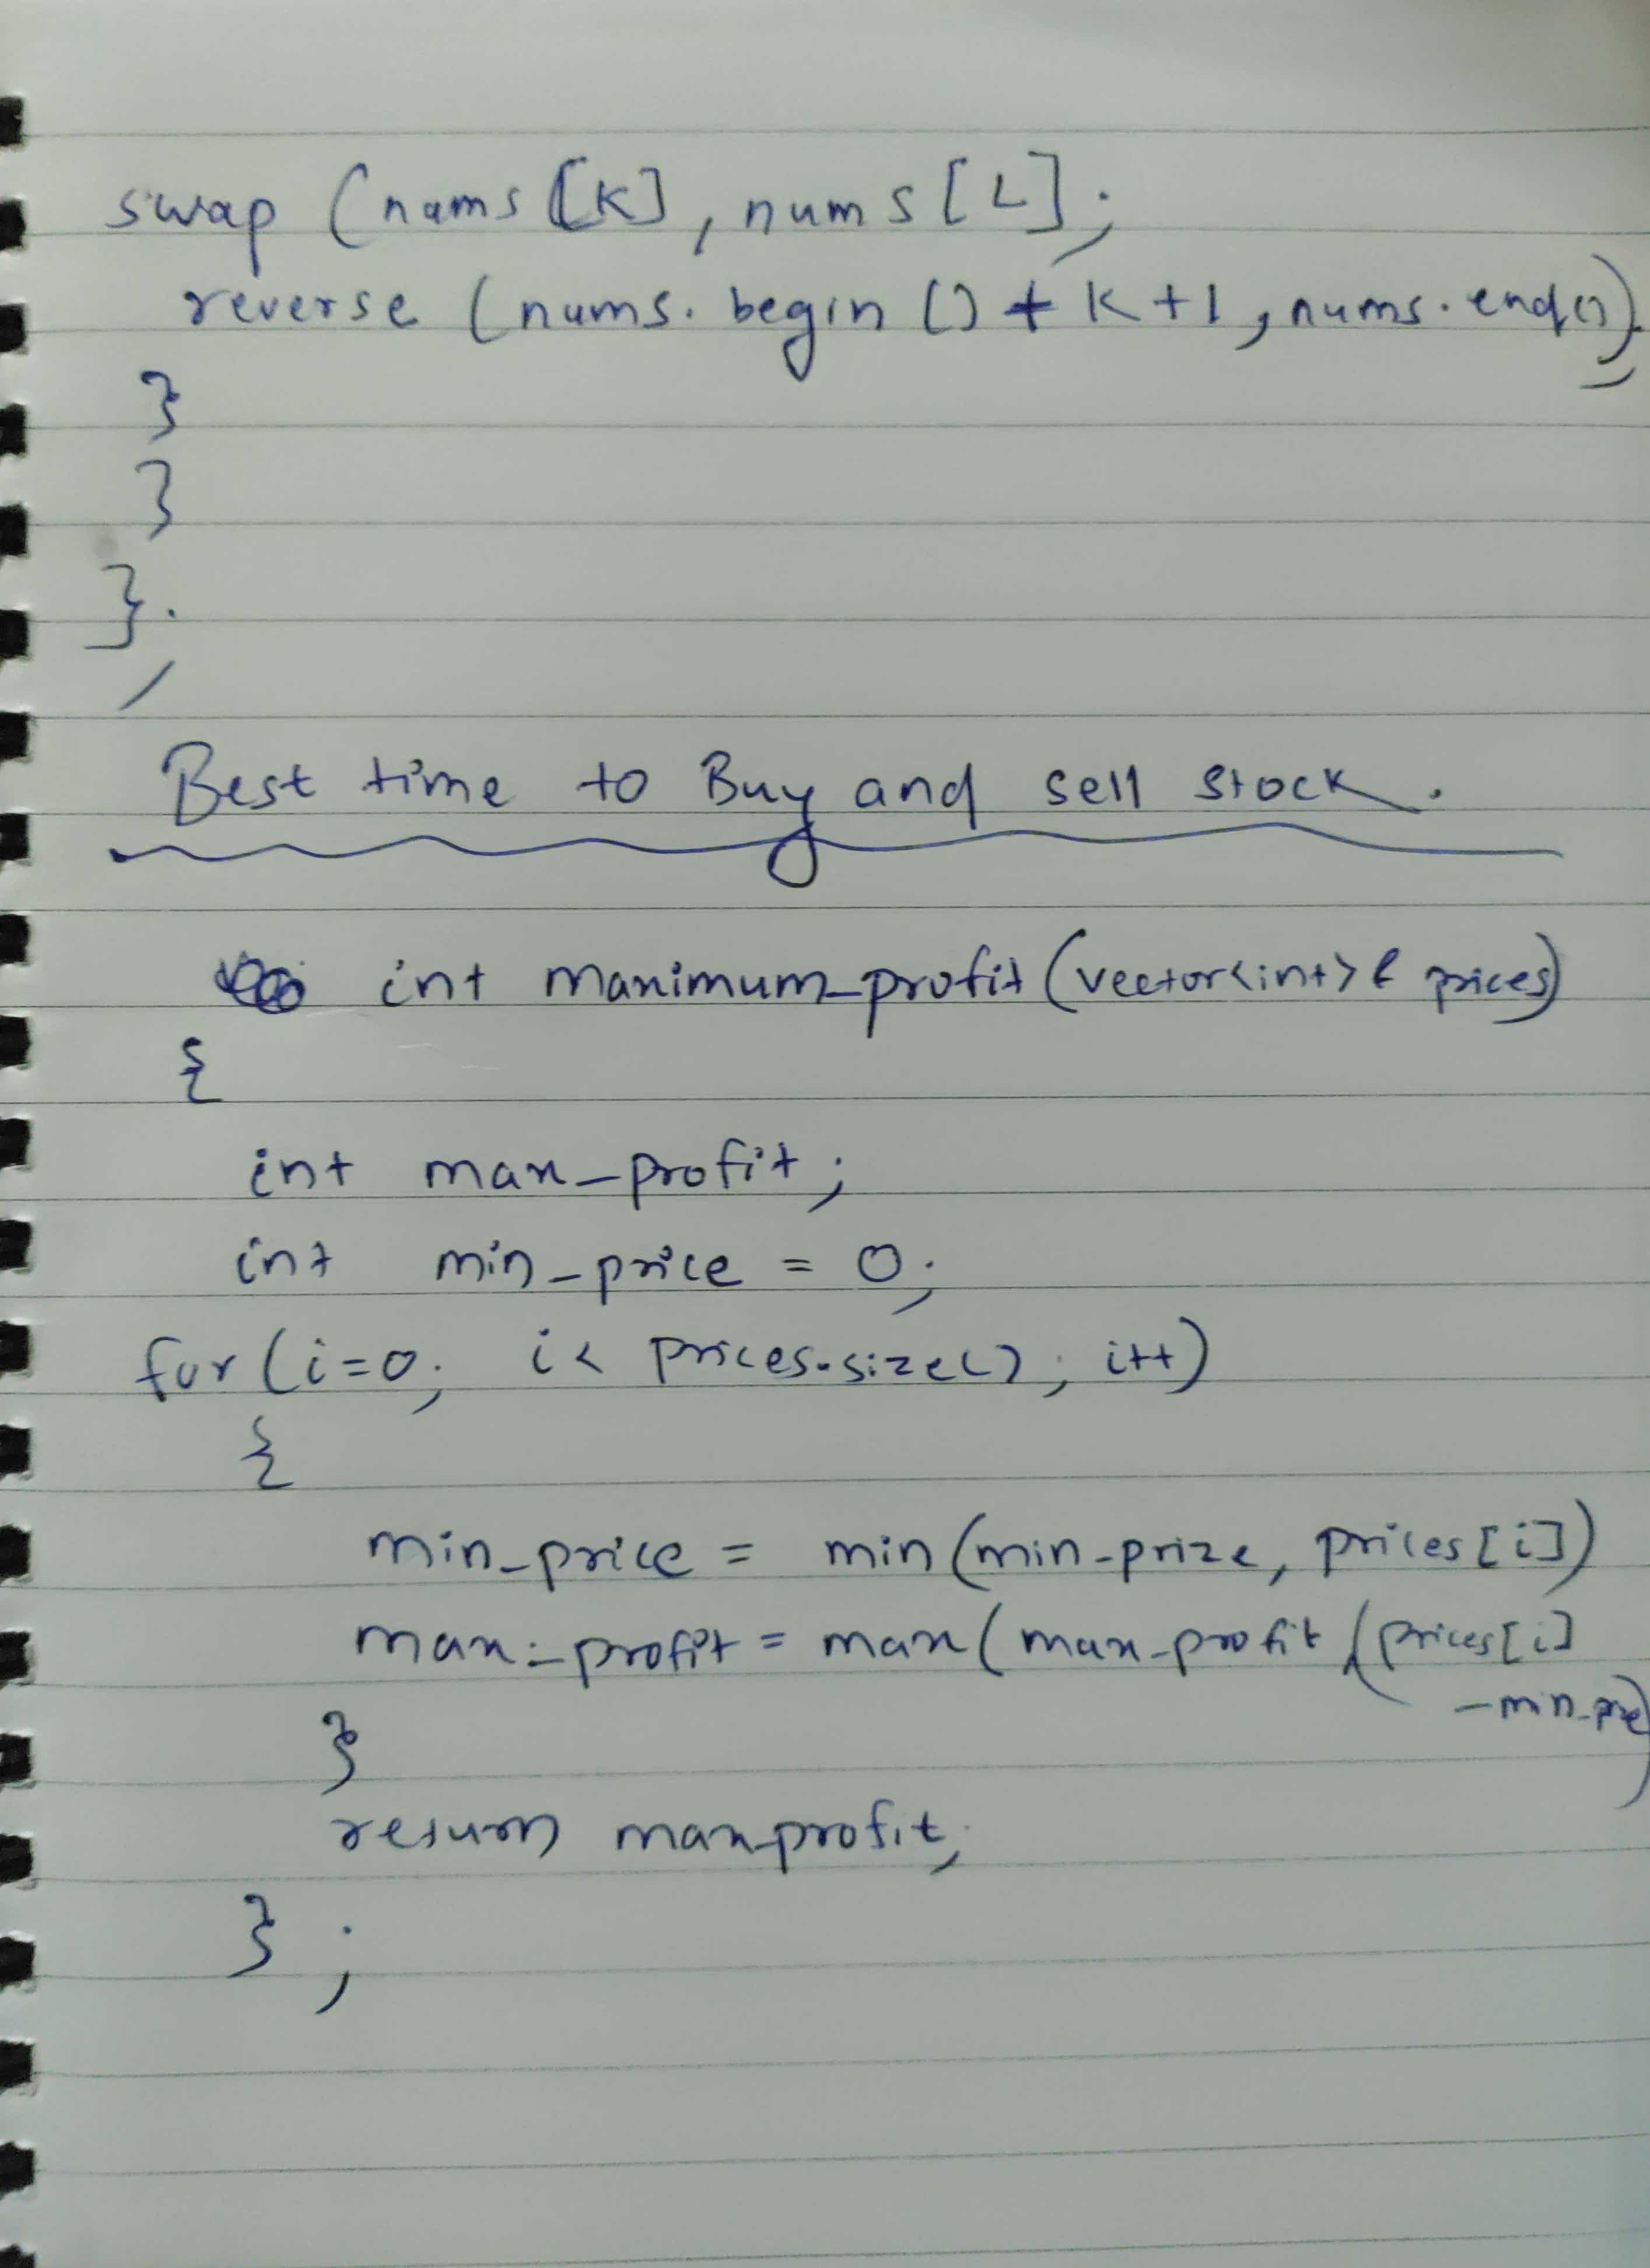 swap (nums [K], nums [L];
reverse (nums. begin () + K + 1, nums. end());
}
}
};
Best time to Buy and sell stock.
int maximum_profit (vector<int>& prices)
{
int max_profit;
int min_price = 0;
for (i=0; i< prices.size(); i++)
{
min_price = min (min_prize, prices[i])
max_profit = max (max_profit, (prices[i]
-min_pre)
}
return maxprofit;
} ;